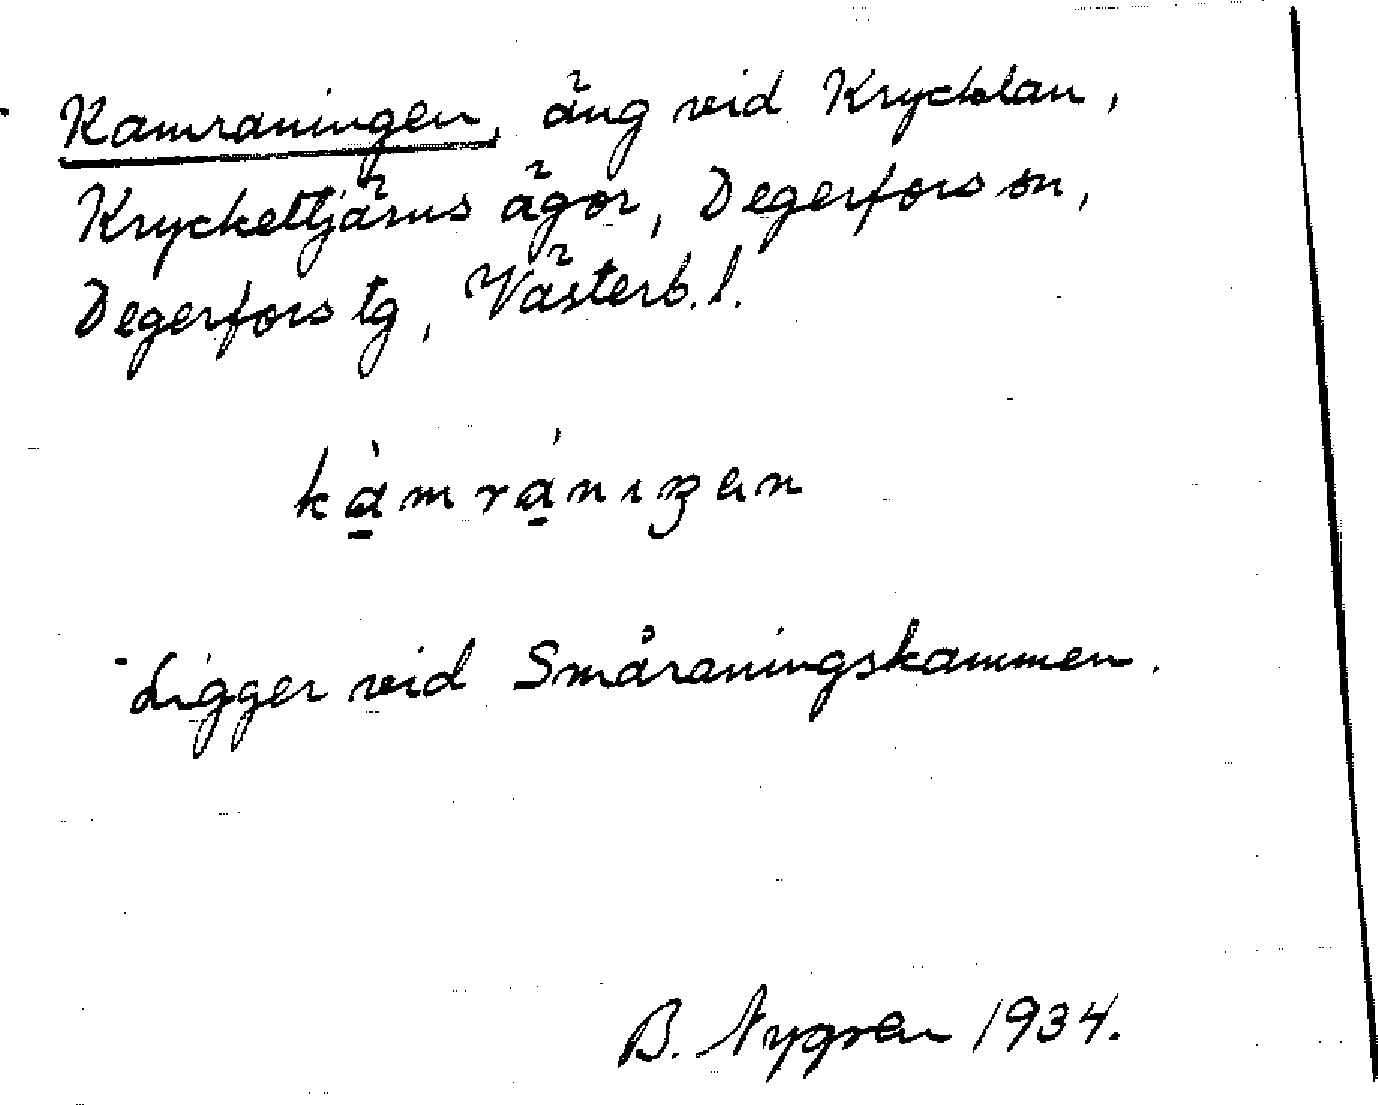 Kamraningen, äng vid Krycklan,
Kryckeltjärns ägor, Degerfors sn,
Degerfors tg, Västerb. l.
kàmránıŋen
Ligger vid Småraningskammen.
B. Nygren 1934.